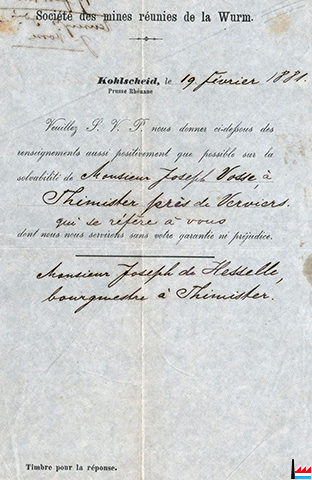 Société des mines réunies de la Wurm.
Kohlscheid, le 19 février 1881.
Prusse Rhénane
Veuillez S. V. P. nous donner ci-dessous des
renseignements aussi positivement que possible sur la
solvabilité de Monsieur Joseph Vosse à
Thimister près de Verviers.
qui se réfère à vous
dont nous nous servirons sans votre garantie ni préjudice.
Monsieur Joseph de Hesselle,
bourgmestre à Thimister.
Timbre pour la réponse.